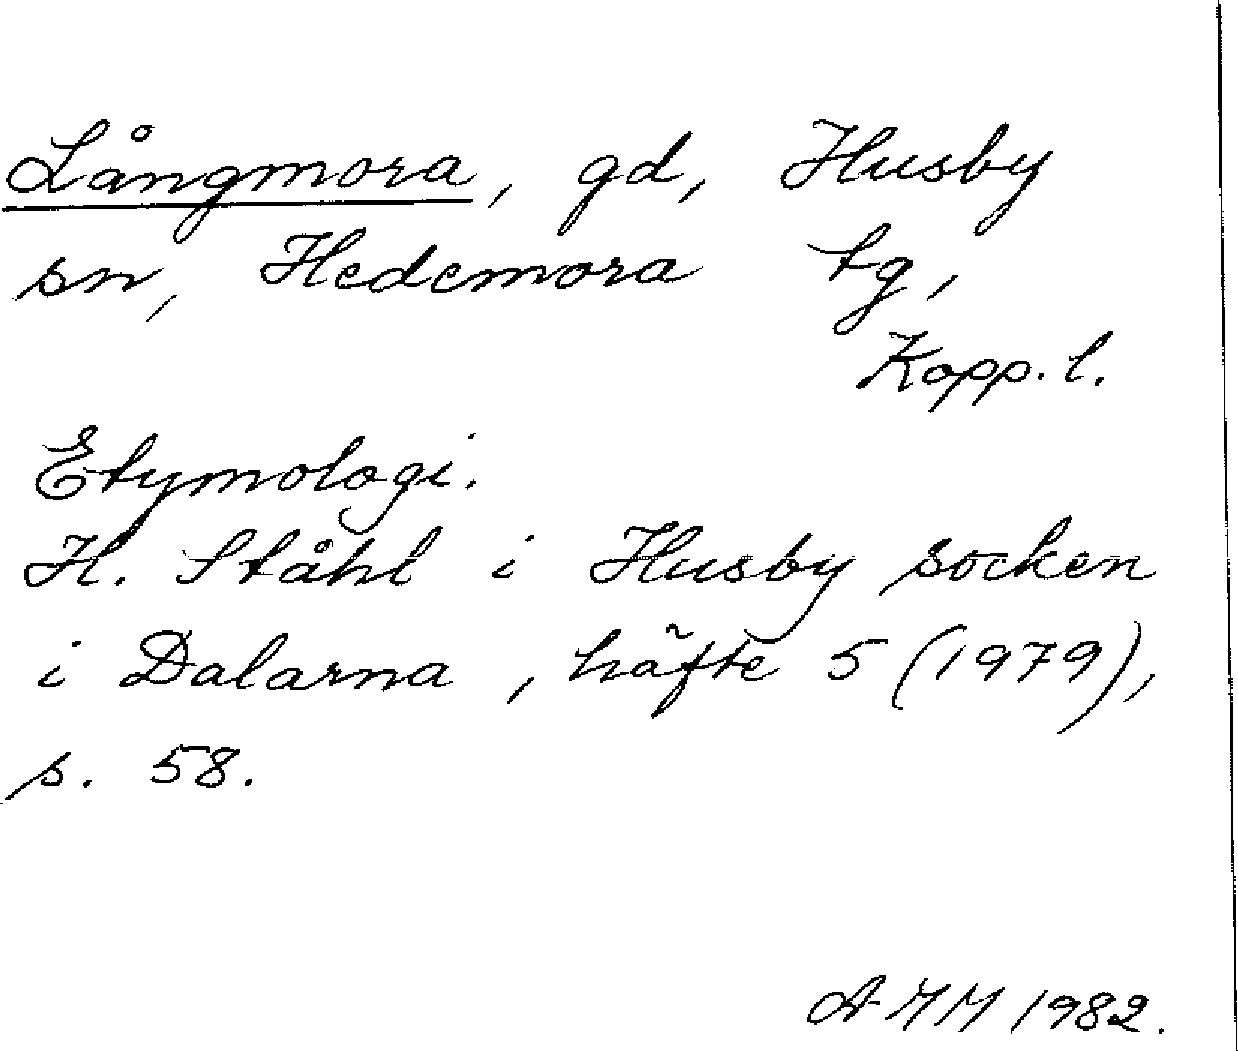 Långmora, gd, Husby
sn, Hedemora tg,
Kopp. l.
Etymologi.
H. Ståhl i Husby socken
i Dalarna, häfte 5 (1979),
s. 58.
A-MM 1982.